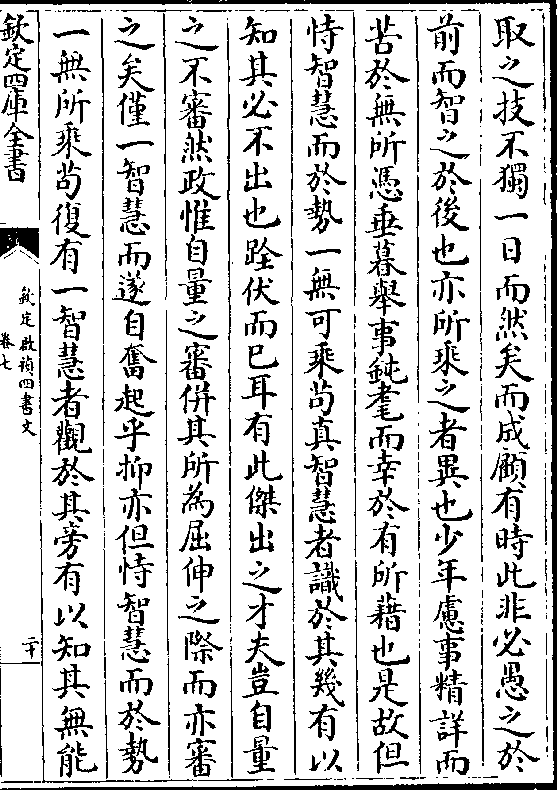 取之技不獨一日而然矣而成顧有時此非必愚之於
前而智之於後也亦所乘之者異也少年慮事精詳而
苦於無所憑垂暮舉事鈍耄而幸於有所藉也是故但
恃智慧而於勢一無可乘茍真智慧者識於其幾有以
知其必不出也跧伏而已耳有此傑出之才夫豈自量
之不審然政惟自量之審併其所為屈伸之際而亦審
之矣僅一智慧而遂自奮起乎抑亦但恃智慧而於勢
一無所乘茍復有一智慧者觀於其旁有以知其無能
欽定四庫全書
欽定啟禎四書文
卷七
二十